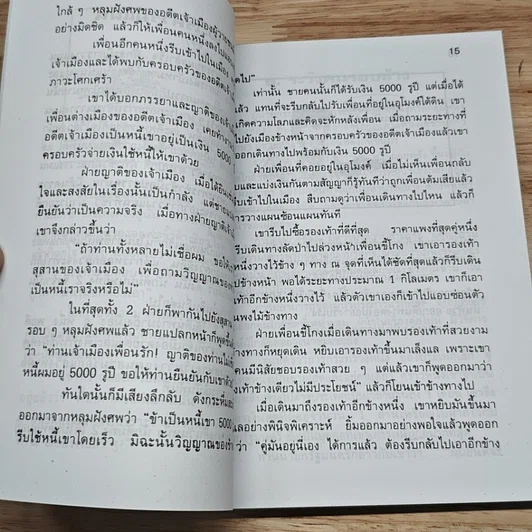 ใกล้ ๆ หลุมฝังศพของอดีตเจ้าเมืองผู้วายชนม์
อย่างมิดชิด แล้วก็ให้เพื่อนคนหนึ่งลงไป
เพื่อนอีกคนหนึ่งรีบเข้าไปใน
เจ้าเมืองและได้พบกับครอบครัวของอดีต
ภาวะโศกเศร้า
เขาได้บอกภรรยาและญาติของ
เพื่อนต่างเมืองของอดีตเจ้าเมือง เคย
อดีตเจ้าเมืองเป็นหนี้เขาอยู่เป็นเงิน 5000
ครอบครัวจ่ายเงินใช้หนี้ให้เขาด้วย
ฝ่ายญาติของเจ้าเมือง เมื่อได้ยิน
ใจและสงสัยในเรื่องนั้นเป็นกำลัง แต่ชาย
ยืนยันว่าเป็นความจริง เมื่อทางฝ่ายญาติ
เขาจึงกล่าวขึ้นว่า
“ถ้าท่านทั้งหลายไม่เชื่อผม ขอให้
สุสานของเจ้าเมือง เพื่อถามวิญญาณของ
เป็นหนี้เราจริงหรือไม่”
ในที่สุดทั้ง 2 ฝ่ายก็พากันไปยังสุสาน
รอบ ๆ หลุมฝังศพแล้ว ชายแปลกหน้าก็พูดขึ้น
ว่า “ท่านเจ้าเมืองเพื่อนรัก! ญาติของท่านไม่
หนี้ผมอยู่ 5000 รูปี ขอให้ท่านยืนยันกับเขา
ทันใดนั้นก็มีเสียงลึกลับ ดังกระหึ่ม
ออกมาจากหลุมฝังศพว่า “ข้าเป็นหนี้เขา 5000
รีบใช้หนี้เขาโดยเร็ว มิฉะนั้นวิญญาณของข้า
15
คไป”
เท่านั้น ชายคนนั้นก็ได้รับเงิน 5000 รูปี แต่เมื่อได้
แล้ว แทนที่จะรีบกลับไปรับเพื่อนที่อยู่ในอุโมงค์ใต้ดิน เขา
เกิดความโลภและคิดจะหักหลังเพื่อน เมื่อถามระยะทางที่
ไปยังเมืองข้างหน้าจากครอบครัวของอดีตเจ้าเมืองแล้วเขา
ออกเดินทางไปพร้อมกับเงิน 5000 รูปี
ฝ่ายเพื่อนที่คอยอยู่ในอุโมงค์ เมื่อไม่เห็นเพื่อนกลับ
และแบ่งเงินกันตามสัญญาก็รู้ทันทีว่าถูกเพื่อนต้มเสียแล้ว
รีบเข้าไปในเมือง สืบถามดูว่าเพื่อนเดินทางไปไหน แล้วก็
การวางแผนซ้อนแผนทันที
เขารีบไปซื้อรองเท้าที่ดีที่สุด ราคาแพงที่สุดคู่หนึ่ง
รีบเดินทางลัดป่าไปล่วงหน้าเพื่อนขี้โกง เขาเอารองเท้า
หนึ่งวางไว้ข้าง ๆ ทาง ณ จุดที่เห็นได้ชัดที่สุดแล้วก็รีบเดิน
ข้างหน้า พอได้ระยะทางประมาณ 1 กิโลเมตร เขาก็เอา
เท้าอีกข้างหนึ่งวางไว้ แล้วตัวเองก็เข้าไปแอบซ่อนตัว
พุ่มไม้ข้างทาง
ฝ่ายเพื่อนขี้โกงเมื่อเดินทางมาพบรองเท้าที่สวยงาม
ทางก็หยุดเดิน หยิบเอารองเท้าขึ้นมาเล็งแล เพราะเขา
คนมีนิสัยชอบรองเท้าสวย ๆ แต่แล้วเขาก็พูดออกมาว่า
เท้าข้างเดียวไม่มีประโยชน์” แล้วก็โยนเข้าข้างทางไป
เมื่อเดินมาถึงรองเท้าอีกข้างหนึ่ง เขาหยิบมันขึ้นมา
แลอย่างพินิจพิเคราะห์ ยิ้มออกมาอย่างพอใจแล้วพูดออก
ว่า “คู่มันอยู่นี่เอง ได้การแล้ว ต้องรีบกลับไปเอาอีกข้าง